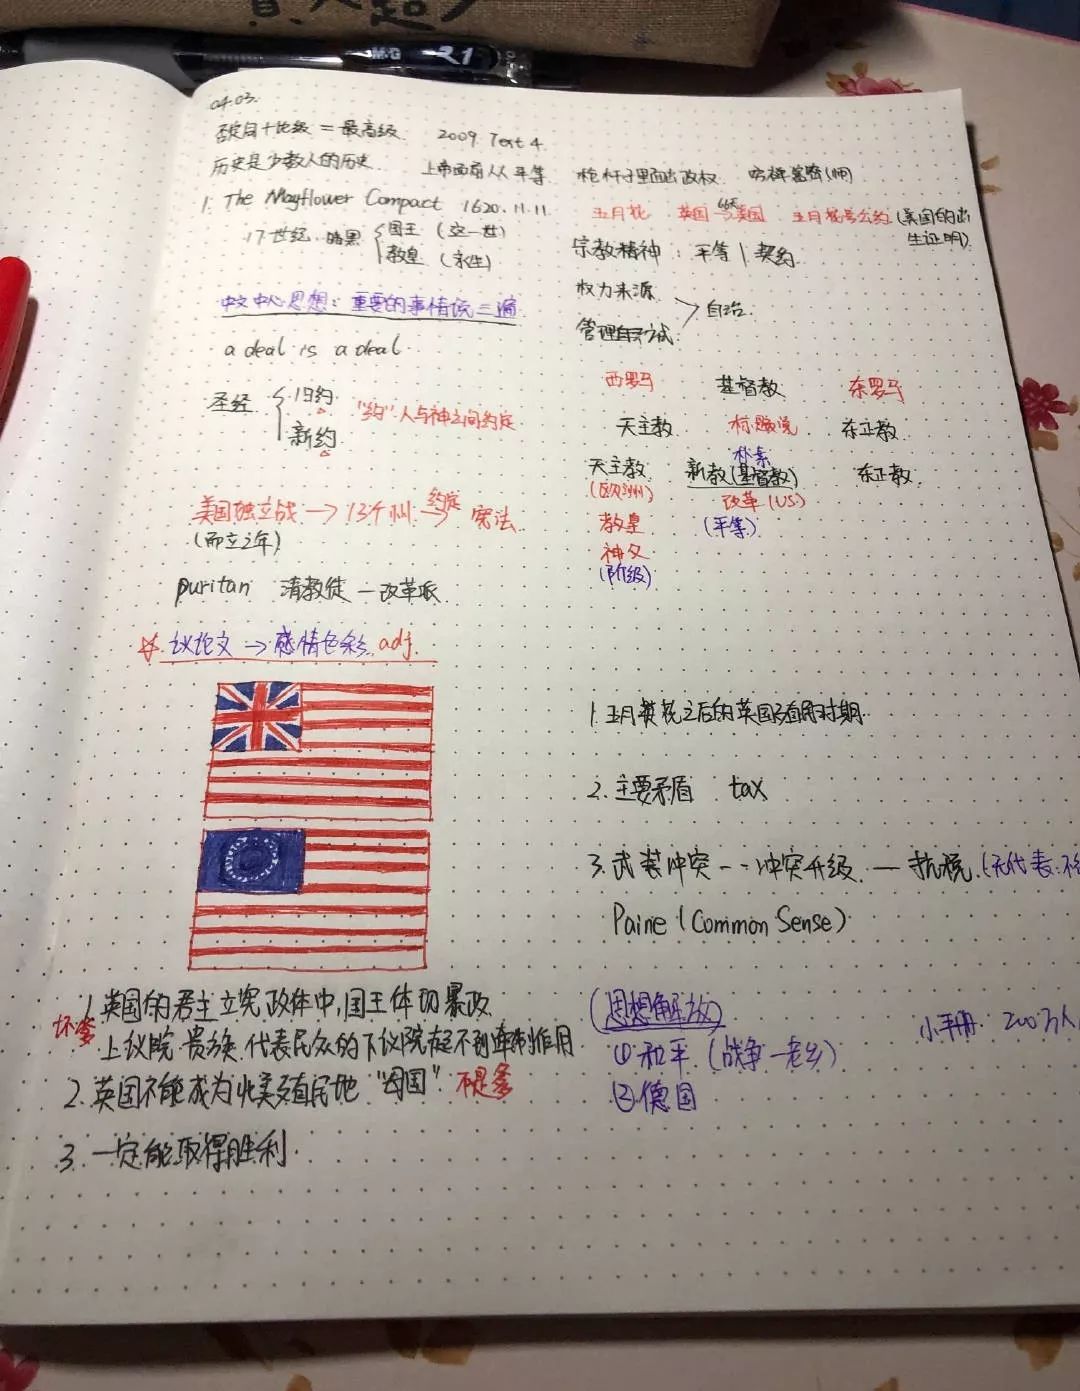 M&G R1
04.03.
否定词+比较级=最高级 2009 Text 4
历史是少数人的历史 上帝面前人人平等 枪杆子里面出政权
1. The Mayflower Compact 1620.11.11
五月花 英国→美国 五月花号公约(美国的出
66天
生证明)
17世纪 暗黑 国王 (这一世)
教皇 (永生)
宗教精神: 平等|契约
权力来源
管理自己方式
自治
中文中心思想: 重要的事情说三遍
a deal is a deal
圣经 旧约
新约
"约" 人与神之间约定
西罗马 基督教 东罗马
天主教 东正教
朴素
天主教 新教(基督教) 东正教
(欧洲) 改革(US)
教皇 (平等)
神父
(阶级)
美国独立战→13个州→宪法
约定
(而立之年)
puritan 清教徒—改革派
☆议论文→感情色彩 adj
1. 五月花之后的英国殖民时期
2. 主要矛盾 tax
3. 武装冲突--冲突升级—抗税(无代表
Paine (Common Sense)
1. 英国的君主立宪政体中,国王体现暴政
坏爹
上议院 贵族 代表民众的下议院起不到牵制作用
2. 英国不能成为北美殖民地"母国" 不是爹
3. 一定能取得胜利
(思想解放)
①和平 (战争—老乡)
②德国
小手册 200万人